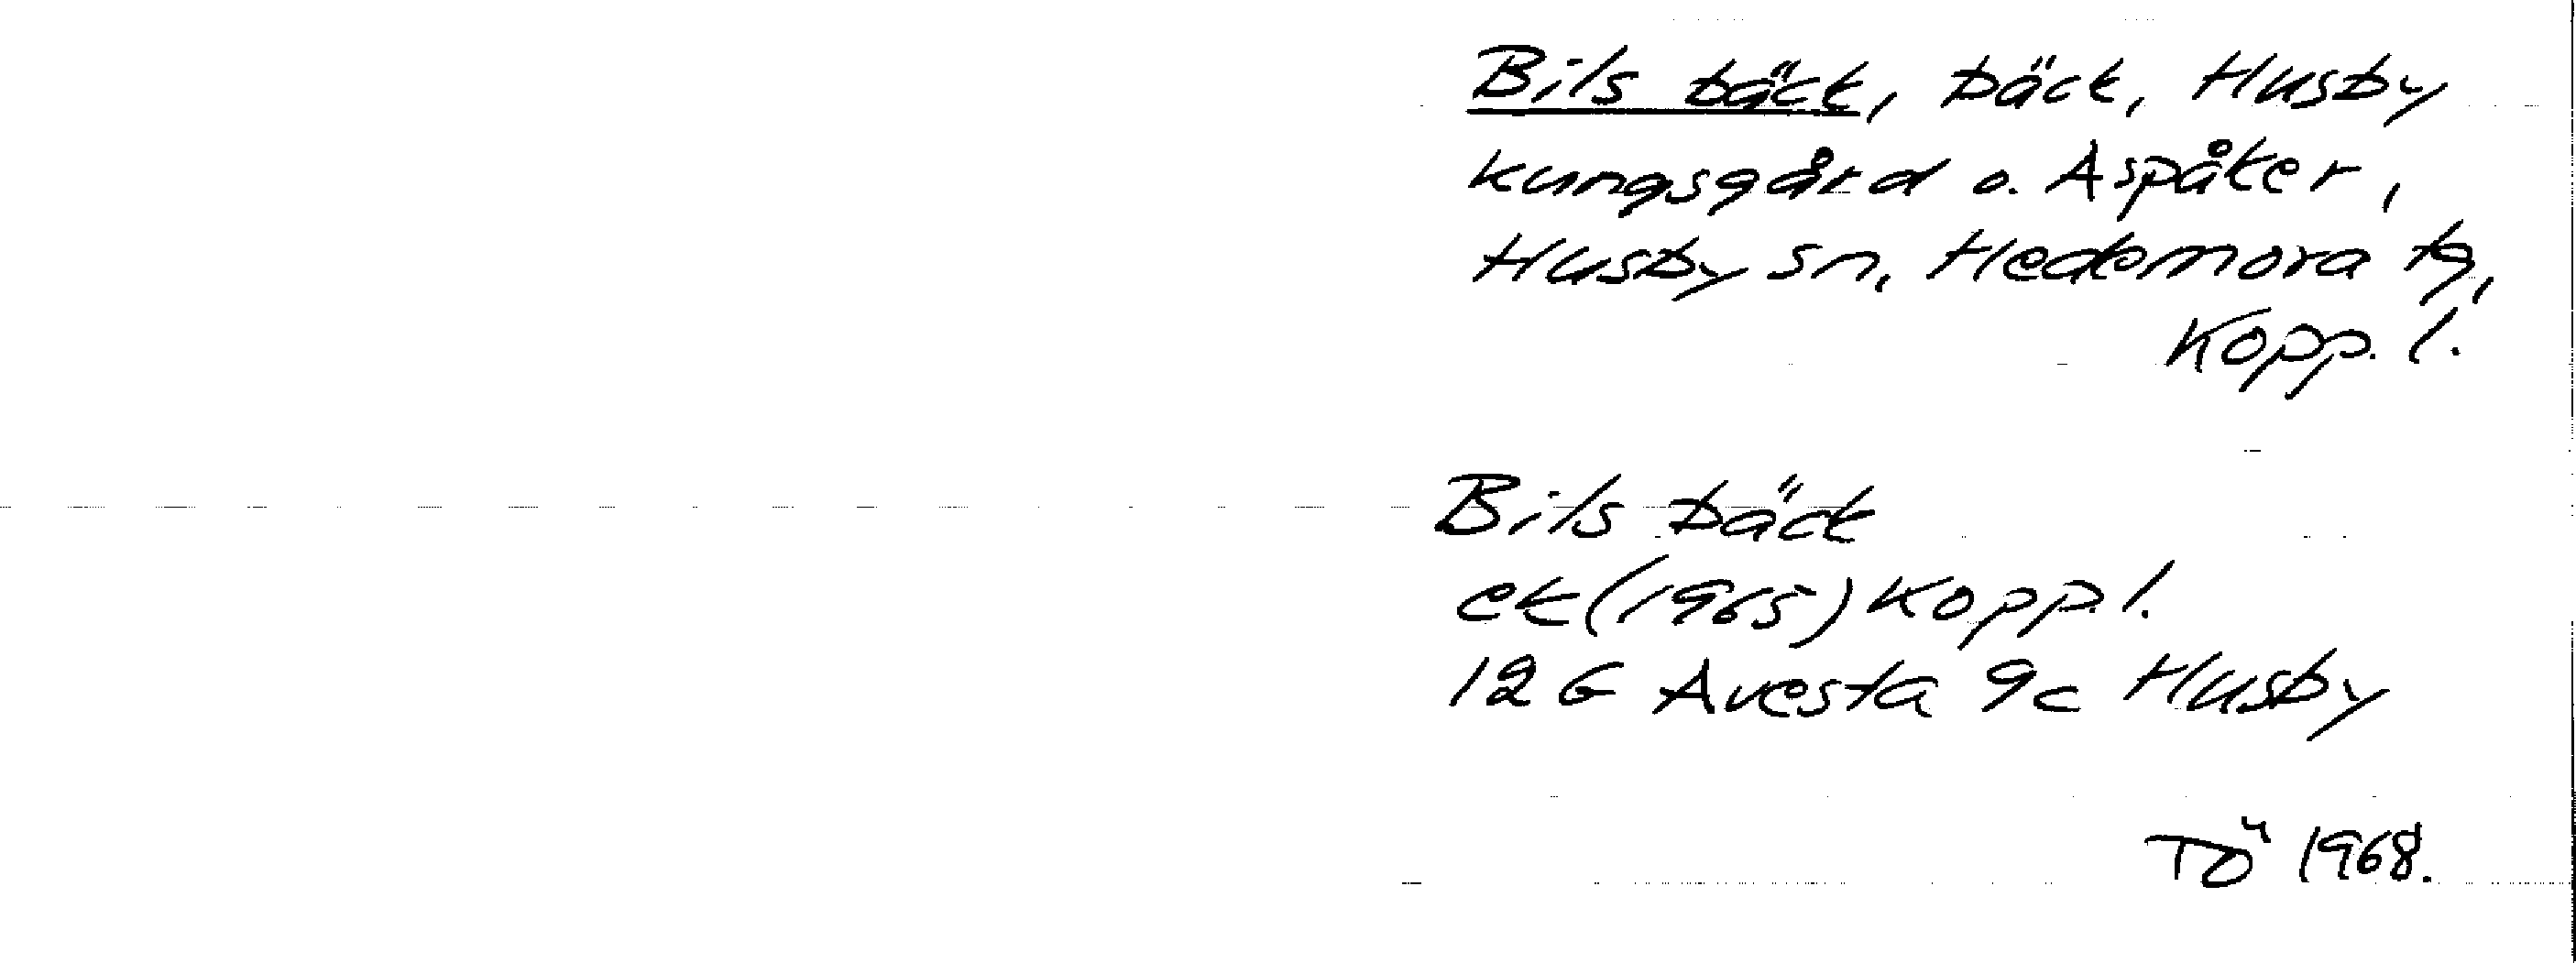 Bils bäck, bäck, Husby
kungsgård o. Aspåker,
Husby sn, Hedemora tg,
Kopp. l.
Bils bäck
ek (1965) Kopp. l.
12 G Avesta 9c Husby
TÖ 1968.